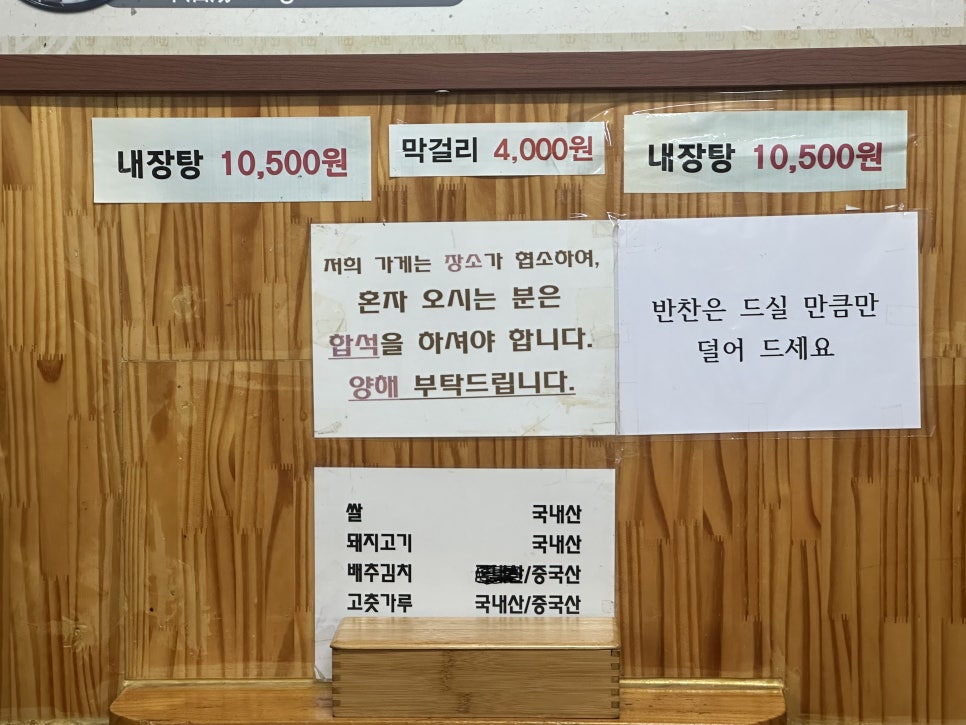 내장탕 10,500원
막걸리 4,000원
내장탕 10,500원
저희 가게는 장소가 협소하여,
혼자 오시는 분은
합석을 하셔야 합니다.
양해 부탁드립니다.
반찬은 드실 만큼만
덜어 드세요
쌀 국내산
돼지고기 국내산
배추김치 /중국산
고춧가루 국내산/중국산